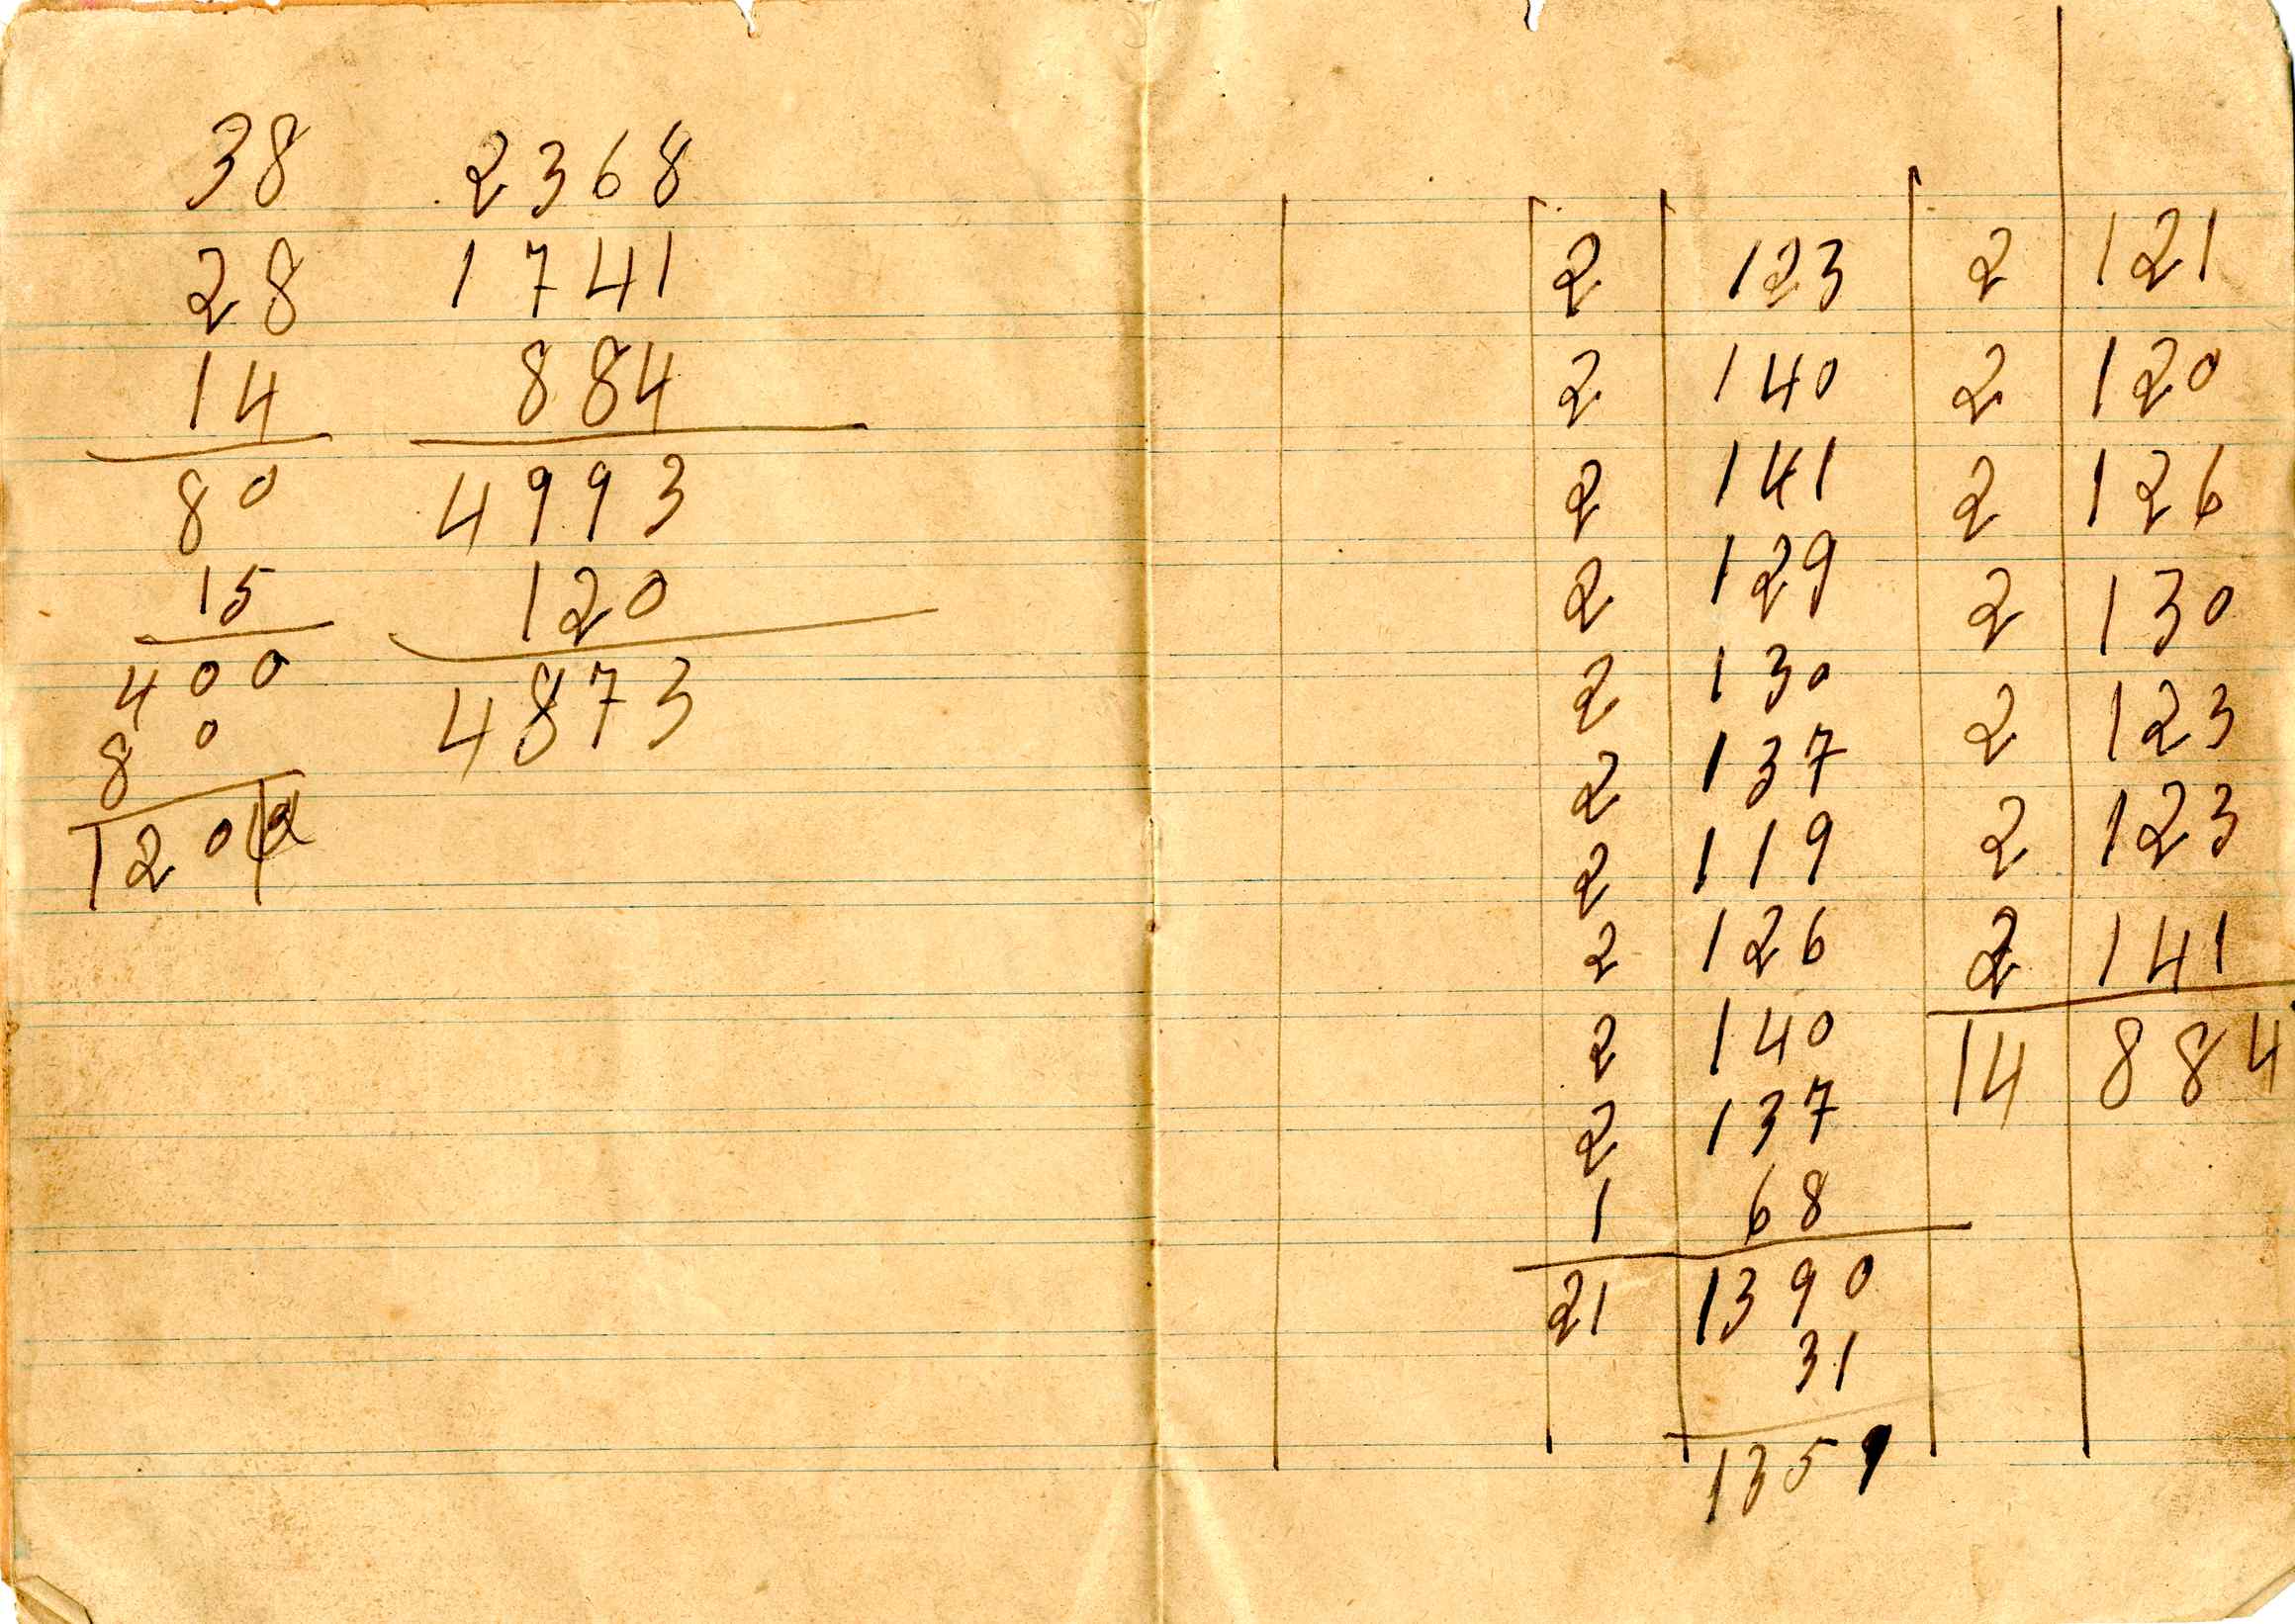 38 2368
28 1741
14 884
80 4993
15 120
400 4873
80
120
2 123 2 121
2 140 2 120
2 141 2 126
2 129 2 130
2 130 2 123
2 137 2 123
2 119 2 141
2 126 14 884
2 140
2 137
1 68
21 1390
31
1359